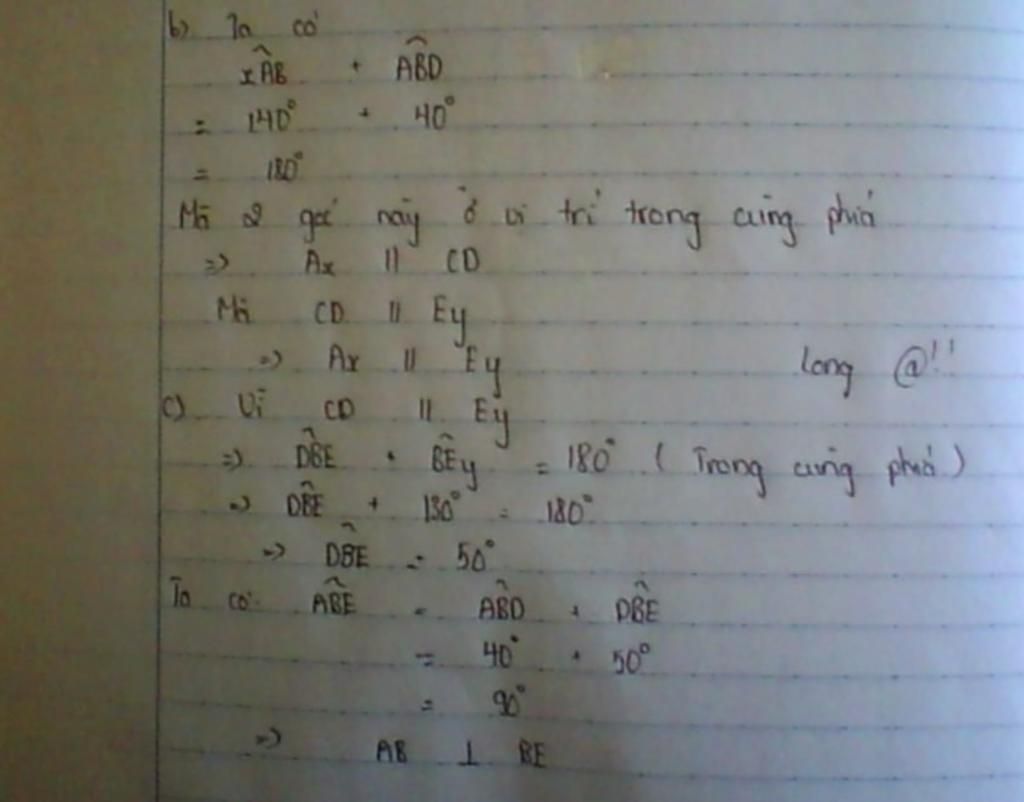 b) Ta có
xÂB + AB̂D
= 140° + 40°
= 180°
Mà 2 góc này ở vị trí trong cùng phía
=> Ax // CD
Mà CD // Ey
=> Ax // Ey long @!!
c) Vì CD // Ey
=> DB̂E + BÊy = 180° (Trong cùng phía)
=> DB̂E + 130° = 180°
=> DB̂E = 50°
Ta có: AB̂E = AB̂D + DB̂E
= 40° + 50°
= 90°
=> AB ⊥ BE